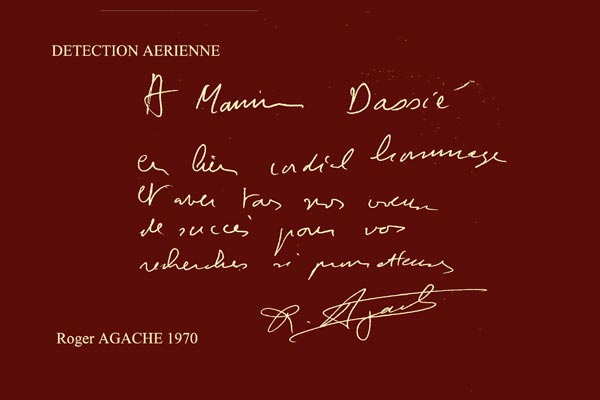 DETECTION AERIENNE
A Monsieur Dassié
en bien cordial hommage
et avec tous mes voeux
de succès pour vos
recherches si prometteuses
R. Agache
Roger AGACHE 1970